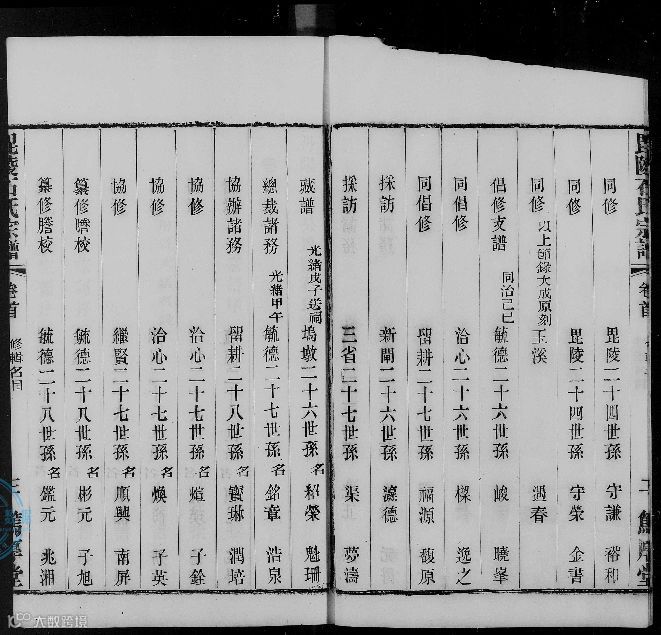 同修 毘陵二十四世孫 守謙
同修 毘陵二十四世孫 守榮 金書
同修 以上節錄大成原刻 玉溪 遇春
倡修支譜 同治己巳 毓德二十六世孫 峻 曉峯
同倡修 洽心二十六世孫 樑 逸之
同倡修 留耕二十七世孫 福源 馥原
採訪 新閘二十六世孫 德
採訪 三省二十七世孫 渠 夢濤
藏譜 光緒戊子送祠 塢墩二十六世孫 名 紹榮 魁珊
總裁諸務 光緒甲午 毓德二十七世孫 名 銘章 浩泉
協辦諸務 留耕二十八世孫 名 寶琳 潤培
協修 洽心二十七世孫 名 煊 子銓
協修 洽心二十七世孫 名 煥 子英
協修 繼賢二十七世孫 名 順興 南屏
纂修謄校 毓德二十八世孫 名 彬元 子旭
纂修謄校 毓德二十八世孫 名 鑑元 兆湘
氏宗譜 卷首 修輯名目 三 篤厚堂
大数跨境